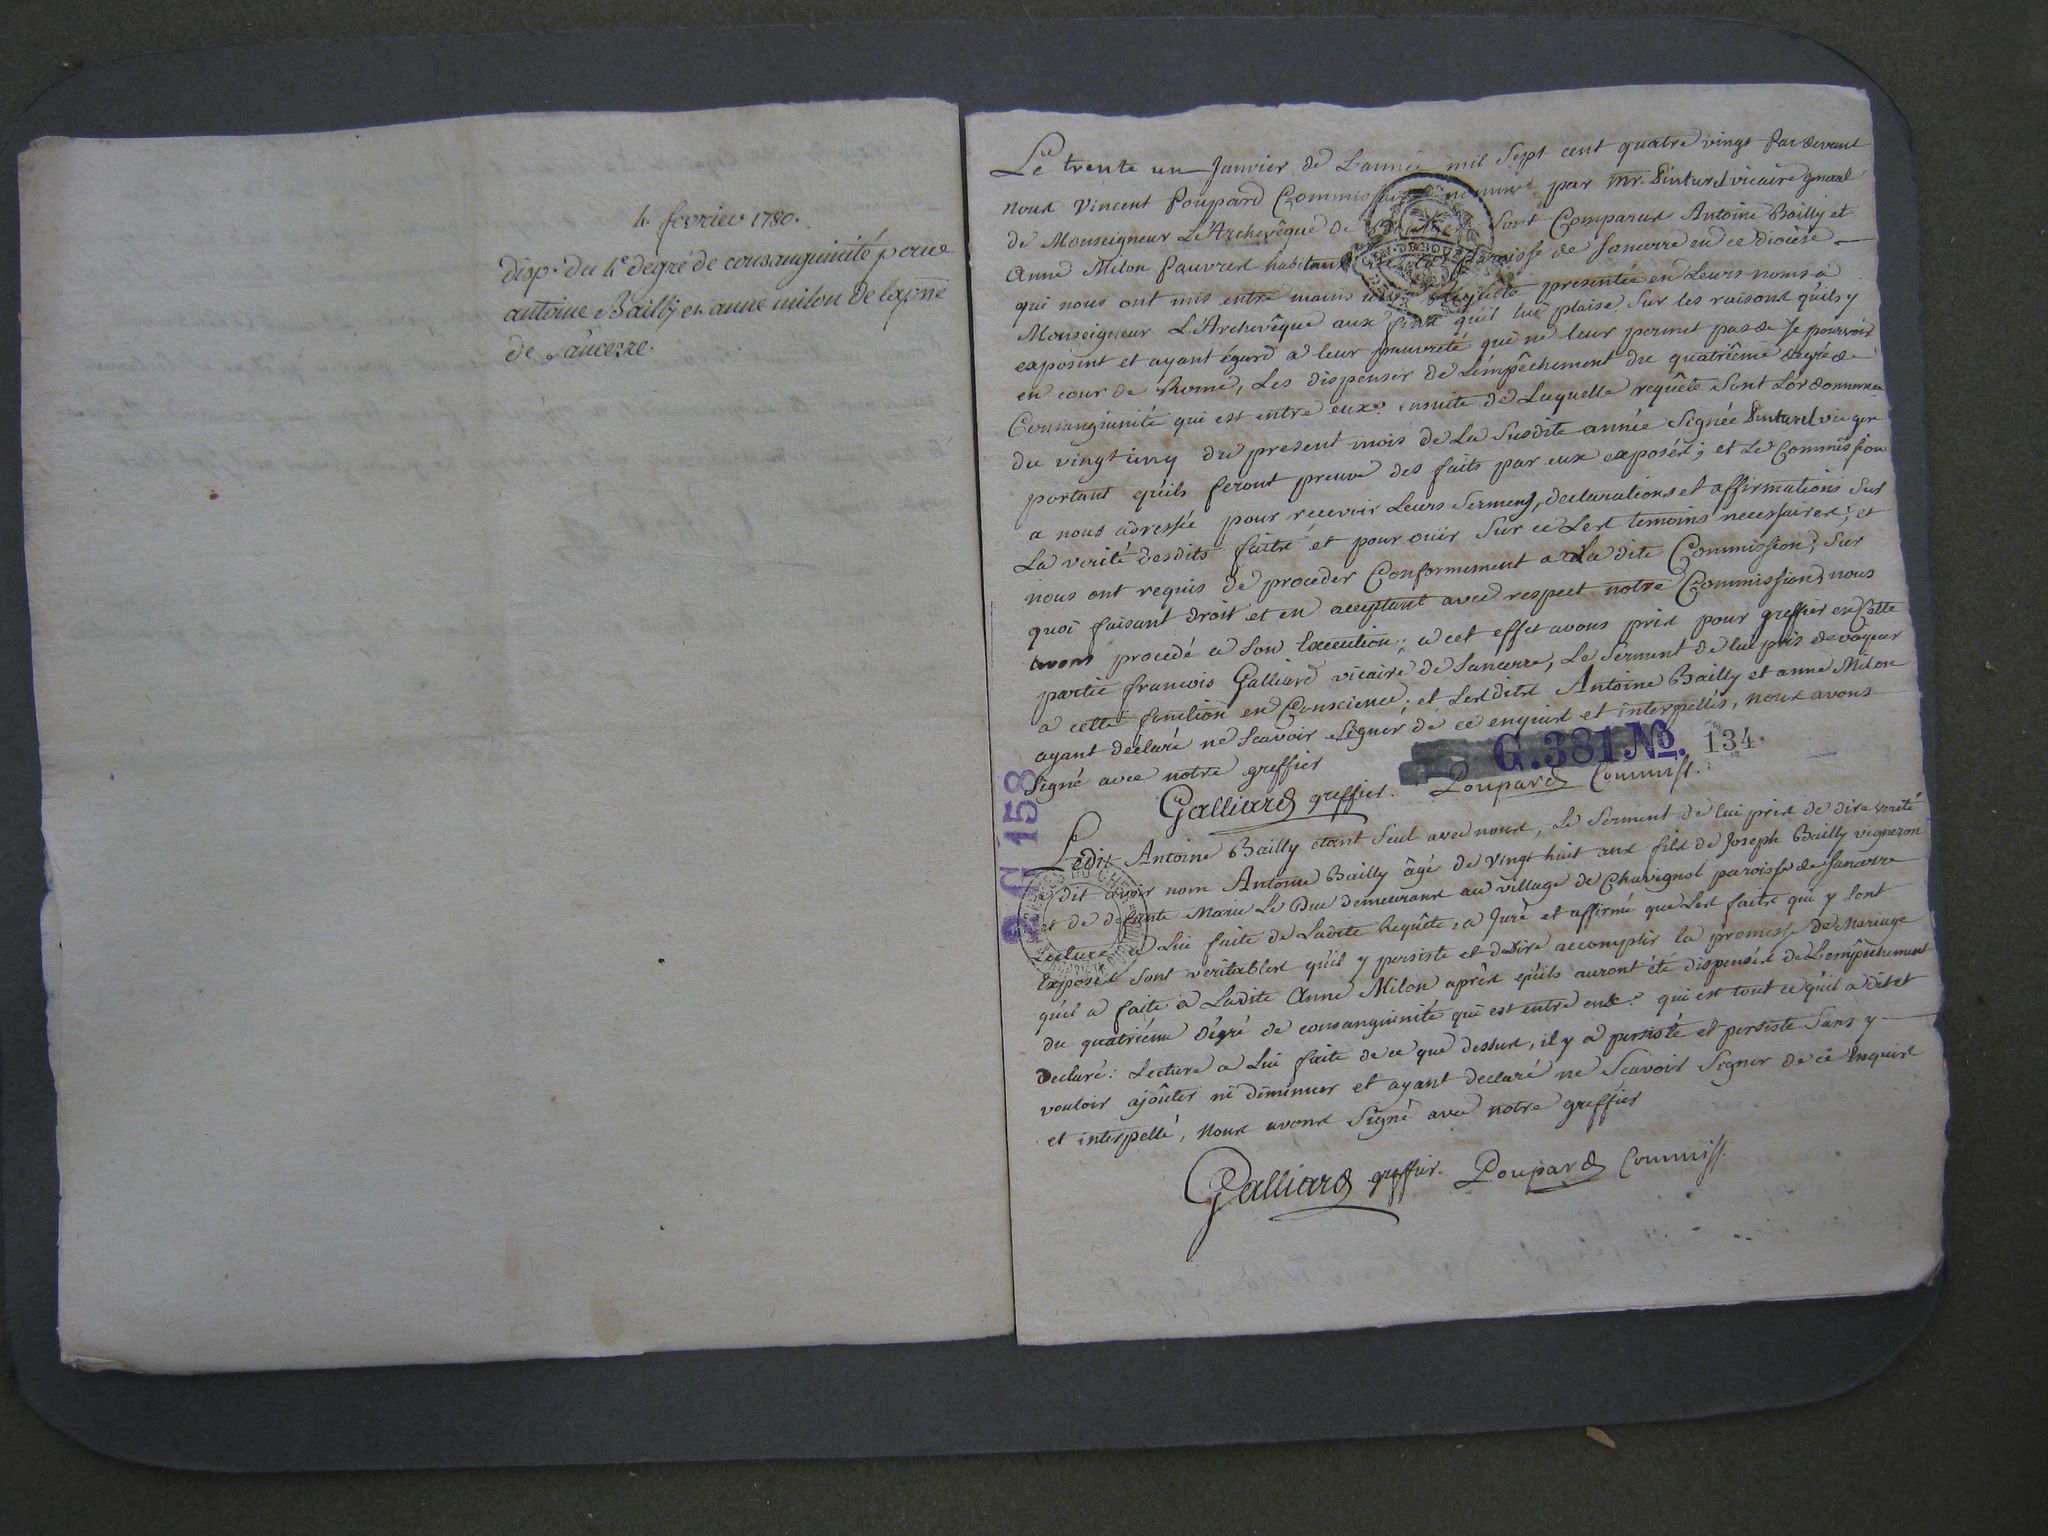 4. fevrier 1780.
disp. du 4e degré de consanguinité pour
antoine Bailly et anne milon de la psse
de Sancerre.
Le trente un Janvier de L'année mil Sept cent quatre vingt Par devant
nous Vincent Poupard Commissaire nommé par Mr. vicaire general
de Monseigneur L'Archevêque de Bourges Sont Comparus Antoine Bailly et
Anne Milon Pauvres habitans de la Paroisse de Sancerre en ce Diocèse
qui nous ont mis entre mains une Requête presentée en Leurs noms a
Monseigneur L'Archevêque aux fins qu'il lui plaise Sur les raisons qu'ils y
exposent et ayant égard a leur pauvreté qui ne leur permet pas de Se pourvoir
en cour de Rome, Les dispenser de L'empêchement du quatrième degré de
Consanguinité qui est entre eux. ensuite de Laquelle requête Sont L'ordonnance
du vingt cinq du present mois de La Susdite année Signée vic gnr
portant qu'ils feront preuve des faits par eux exposés; et Le Commission
a nous adressée pour recevoir Leurs Serment, declarations et affirmations Sur
La verité desdits faits et pour ouir Sur ce Les temoins necessaires; et
nous ont requis de proceder Conformement a La dite Commission; Sur
quoi faisant droit et en acceptant avec respect notre Commission, nous
avons procédé a Son Execution; a cet effet avons pris pour greffier en Cette
partie francois Galliard vicaire de Sancerre, Le Serment de lui pris de vaquer
a cette fonction en Conscience; et Lesdits Antoine Bailly et anne Milon
ayant declaré ne Scavoir Signer de ce enquis et interpellés, nous avons
Signé avec notre greffier
G.381 No. 134
Galliard greffier. Poupard Commiss.
2 G 158
Ledit Antoine Bailly étant Seul avec nous, Le Serment de lui pris de dire verité
a dit avoir nom Antoine Bailly âgé de vingt huit ans fils de Joseph Bailly vigneron
et de defunte Marie Le Duc demeurant au village de Chavignol paroisse de Sancerre
Lecture a Lui faite de Ladite Requête, a Juré et affirmé que Les faits qui y Sont
Exposés Sont veritables qu'il y persiste et desire accomplir la promesse de Mariage
qu'il a faite a Ladite Anne Milon après qu'ils auront été dispensés de L'empêchement
du quatriéme dégré de consanguinité qui est entre eux. qui est tout ce qu'il a dit et
declaré: Lecture a Lui faite de ce que dessus, il y a persisté et persiste Sans y
vouloir ajôuter ni diminuer et ayant declaré ne Scavoir Signer de ce Enquis
et interpellé, Nous avons Signé avec notre greffier
Galliard greffier. Poupard Commiss.